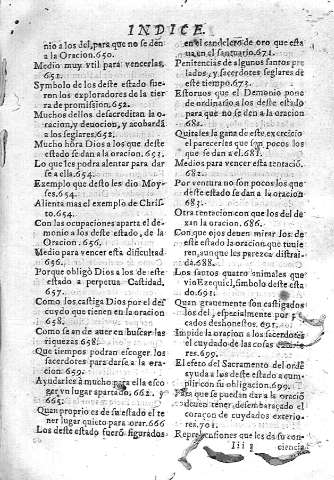 INDICE.
nio a los del, para que no se den
a la Oracion. 650.
Medio muy vtil para vencerlas,
652.
Symbolo de los deste estado fue-
ron los exploradores de la tier
ra de promission. 652.
Muchos dellos desacreditan la o-
racion, y deuocion, y acobardã
a los seglares. 652.
Mucho hõra Dios a los que deste
estado se dan a la oracion. 653.
Lo que les podra alentar para dar
se a ella. 654.
Exemplo que desto les dio Moy-
ses. 654.
Alienta mas el exemplo de Chris-
to. 654.
Con las ocupaciones aparta el de-
monio a los deste estado, de la
Oracion. 656.
Medio para vencer esta dificultad
656.
Porque obligò Dios a los de este
estado a perpetua Castidad.
657.
Como los castiga Dios por el des
cuydo que tienen en su oracion
658.
Como se an de auer en buscar las
riquezas 658.
Que tiempos podran escoger los
sacerdotes para darse a la ora-
cion. 659.
Ayudarles à mucho para ella esco
ger vn lugar apartado, 662. y
665.
Quan proprio es de su estado el te
ner lugar quieto para orar. 666
Los deste estado fuerõ figurados
en el candelero de oro que esta
ua en el santuario. 671.
Penitencias de algunos santos pre
lados, y sacerdotes seglares de
este tiempo. 673.
Estoruos que el Demonio pone
de ordinario a los deste estado
para que no se den a la oracion
Quitales la gana de este exercicio
el parecerles que son pocos los
que se dan a el. 681.
Medios para vencer esta tentaciõ.
682.
Por ventura no son pocos los que
deste estado se dan a la oracion
683.
Otra tentacion con que los del de
xan la oracion. 686.
Con que ojos deuen mirar los de
este estado la oracion que tuuie
ren, aunque les parezca distrai-
da. 688.
Los santos quatro animales que
vio Ezequiel, simbolo deste esta
do. 691.
Quan grauemente son castigados
los del, especialmente por pe-
cados deshonestos. 691.
Impide la oracion a los sacerdotes
el cuydado de las cosas
res. 699.
El efeto del Sacramento del ordẽ
ayuda a los deste estado a cum-
plir con su obligacion. 699.
Para que se puedan dar a la oraciõ
deuen tener desembaraçado el
coraçon de cuydados exterio-
res. 701.
Reprehensiones que les da su con-
Iii 3 ciencia